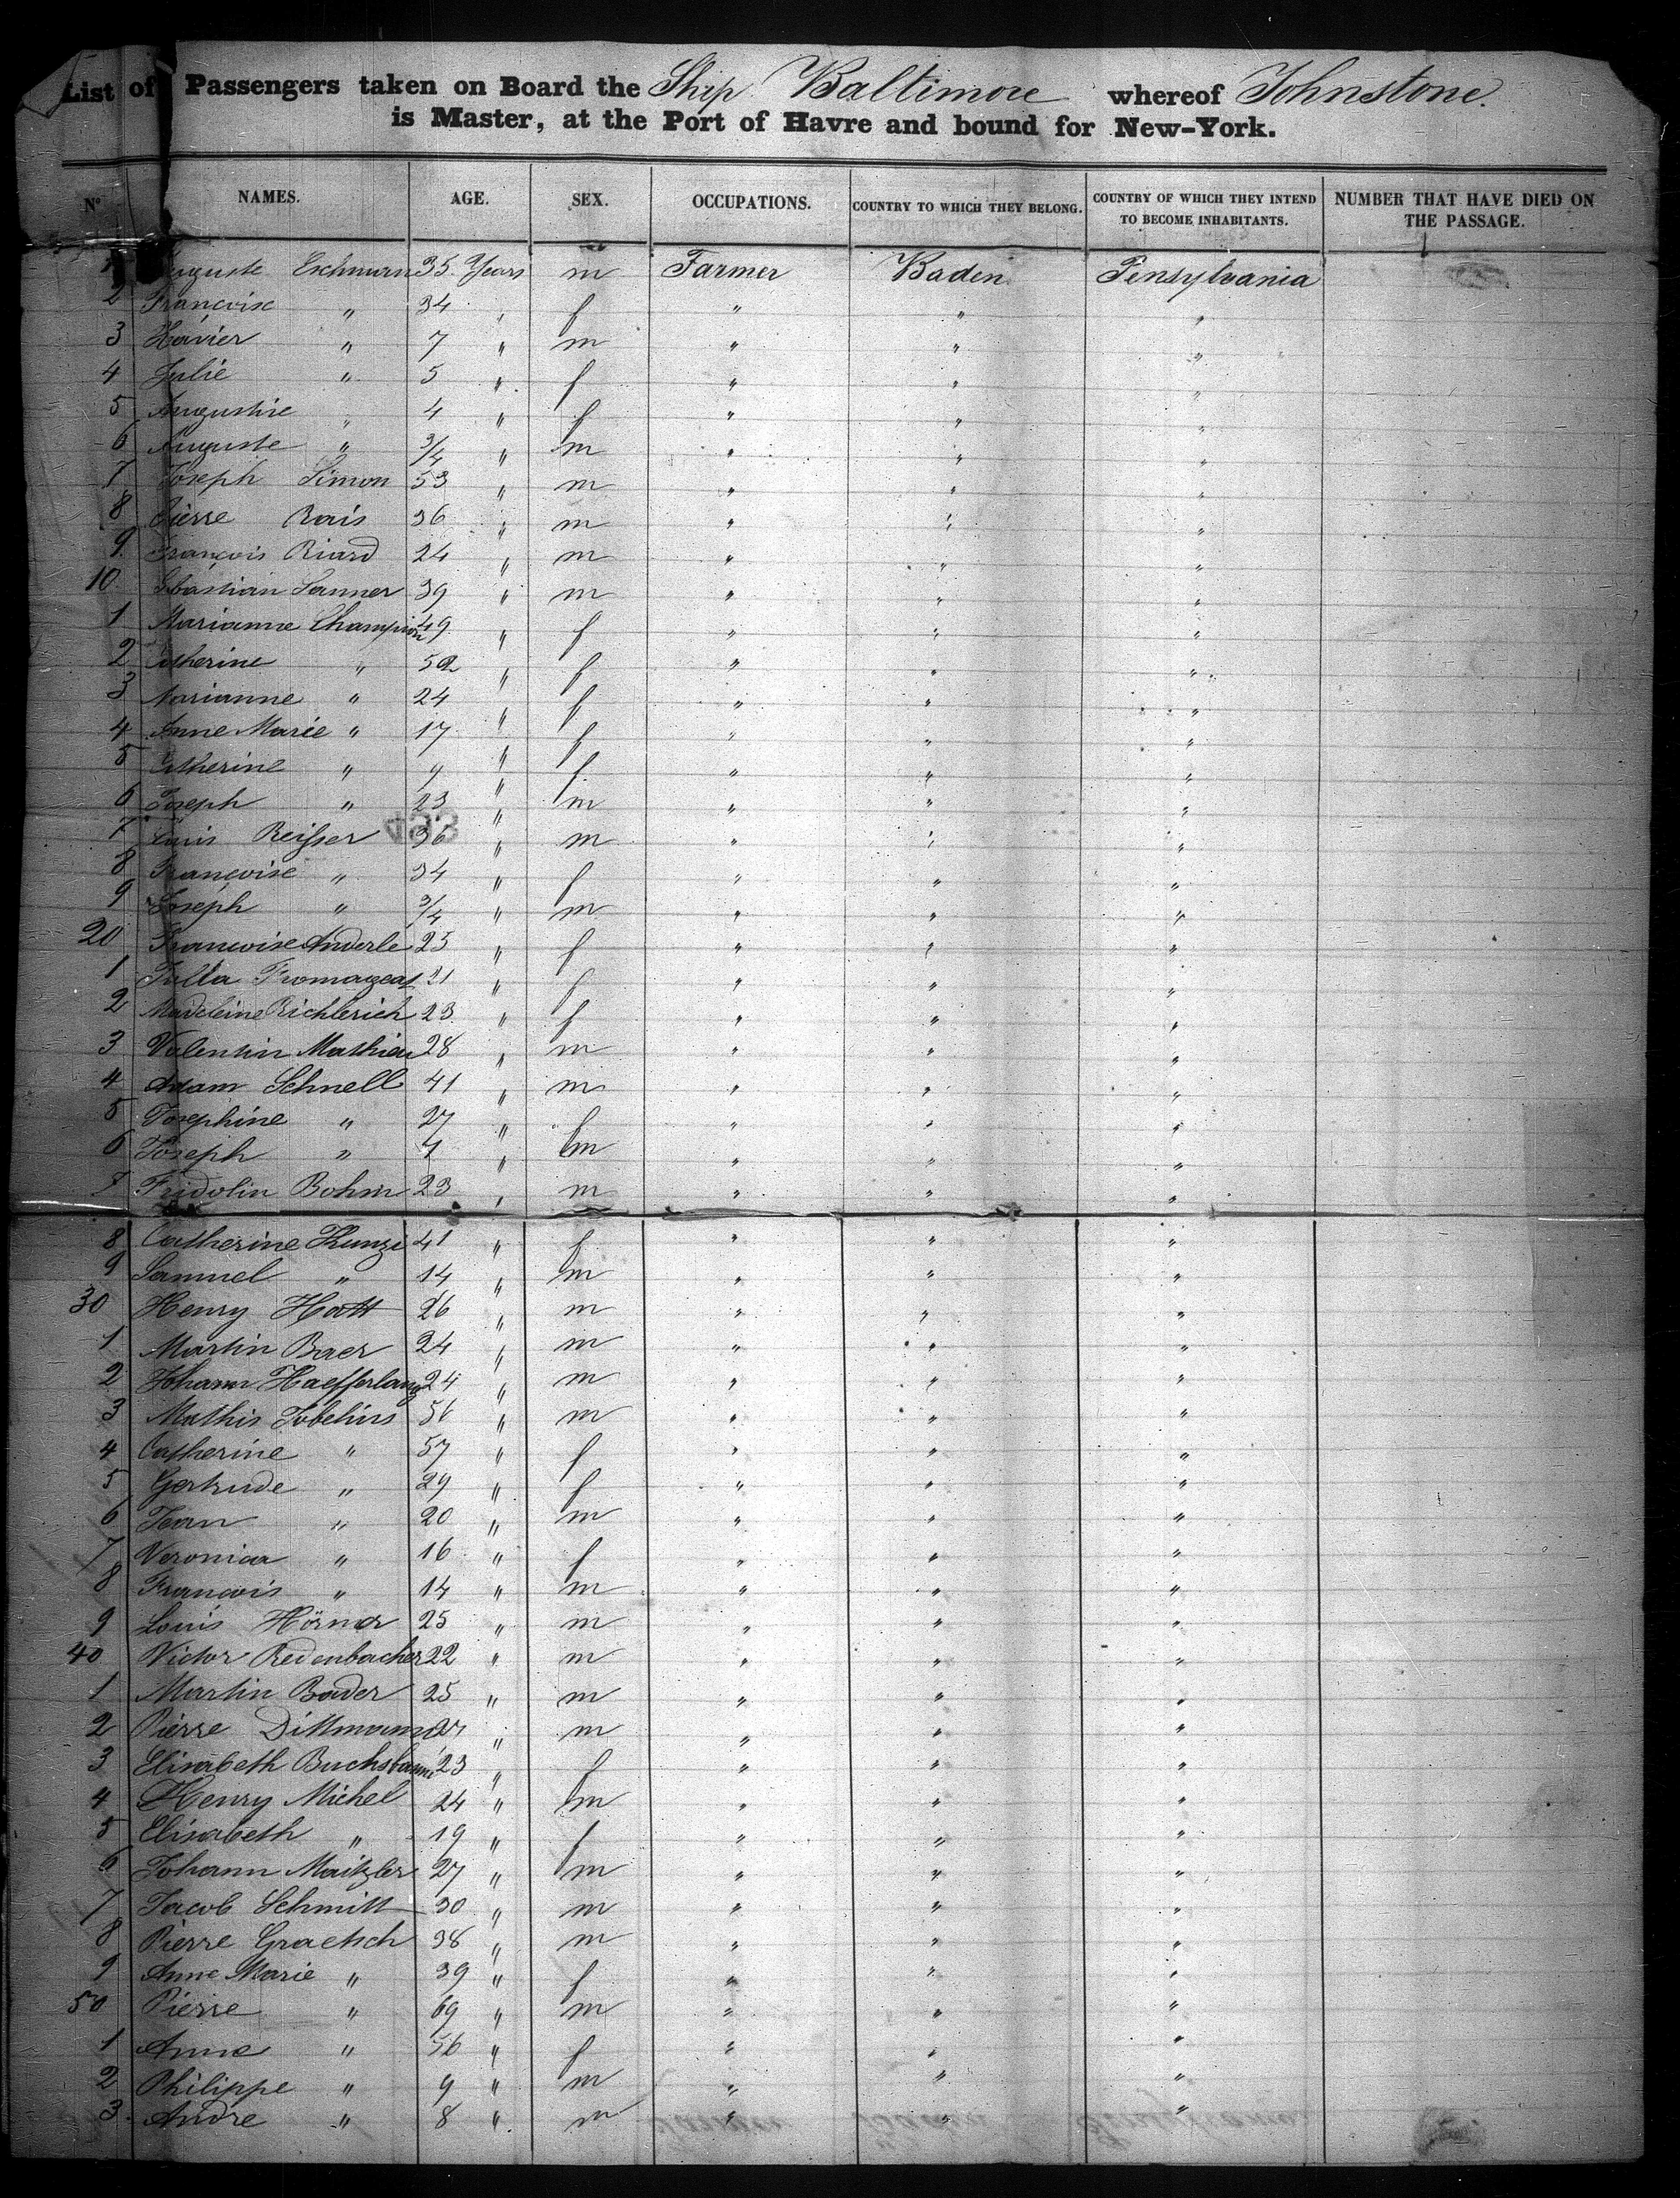 List of Passengers taken on Board the Ship Baltimore whereof Johnstone.
is Master, at the Port of Havre and bound for New-York.
N° NAMES. AGE. SEX. OCCUPATIONS. COUNTRY TO WHICH THEY BELONG. COUNTRY OF WHICH THEY INTEND TO BECOME INHABITANTS. NUMBER THAT HAVE DIED ON THE PASSAGE.
1 Auguste 35 Years m Farmer Baden Pensylvania
2 Françoise " 34 " f " " "
3 Xavier " 7 " m " " "
4 Julie " 5 " f " " "
5 Augustine " 4 " f " " "
6 Auguste " 3/4 " m " " "
7 Joseph Simon 53 " m " " "
8 Pierre Rais 36 " m " " "
9 François Riard 24 " m " " "
10 Sebastian Sanner 39 " m " " "
1 Marianne Champion 49 " f " " "
2 Catherine " 52 " f " " "
3 Marianne " 24 " f " " "
4 Anne Marie " 17 " f " " "
5 Catherine " 9 " f " " "
6 Joseph " 23 " m " " "
7 Louis Reisser 36 " m " " "
8 Françoise " 34 " f " " "
9 Joseph " 3/4 " m " " "
20 Francoise Anderle 25 " f " " "
1 Julla Fromageat 21 " f " " "
2 Madeleine Richterich 23 " f " " "
3 Valentin Mathieu 28 " m " " "
4 Adam Schnell 41 " m " " "
5 Josephine " 27 " f " " "
6 Joseph " " m " " "
7 Fridolin Bohm 23 " m " " "
8 Catherine Kunzi 41 " f " " "
9 Samuel " 14 " m " " "
30 Henry Hatt 26 " m " " "
1 Martin Baer 24 " m " " "
2 Johann Haefferlang 24 " m " " "
3 Mathis Tobelius 56 " m " " "
4 Catherine " 57 " f " " "
5 Gertrude " 29 " f " " "
6 Jean " 20 " m " " "
7 Veronica " 16 " f " " "
8 Francois " 14 " m " " "
9 Louis Hörner 25 " m " " "
40 Victor Redenbacher 22 " m " " "
1 Martin Bader 25 " m " " "
2 Pierre Dittmann 27 " m " " "
3 Elisabeth Buchsbaum 23 " f " " "
4 Henry Michel 24 " m " " "
5 Elisabeth " 19 " f " " "
6 Johann Maitzler 27 " m " " "
7 Jacob Schmitt 30 " m " " "
8 Pierre Graetsch 38 " m " " "
9 Anne Marie " 39 " f " " "
50 Pierre " 69 " m " " "
1 Anne " 56 " f " " "
2 Philippe " 9 " m " " "
3 Andre " 8 " m " " "